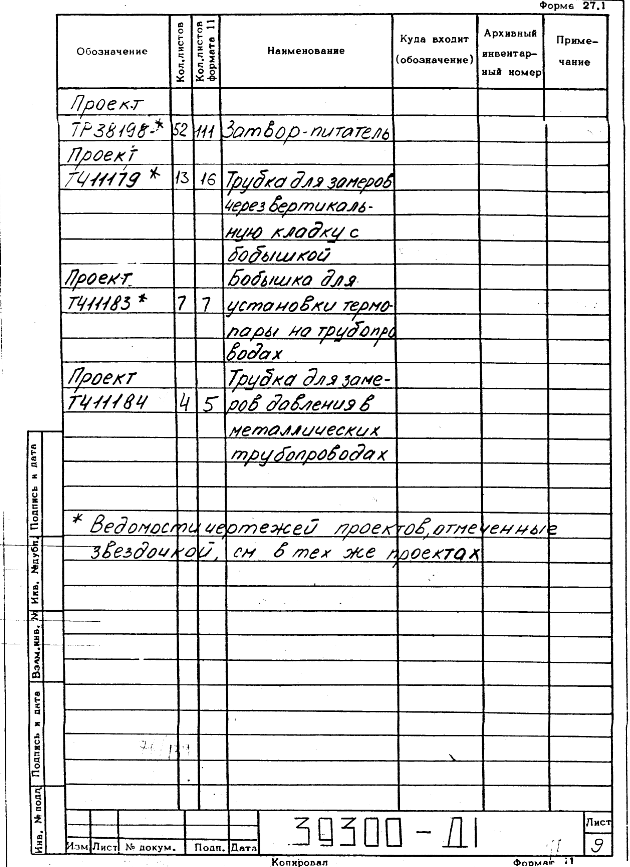 Форма 27.1
Обозначение Кол.листов Кол.листов формата 11 Наименование Куда входит (обозначение) Архивный инвентарный номер Примечание
Проект
ТР38198-* 52 111 Затвор-питатель
Проект
Т411179 * 13 16 Трубка для замеров
через вертикаль-
ную кладку с
бобышкой
Проект Бобышка для
Т411183 * 7 7 установки термо-
пары на трубопро
водах
Проект Трубка для заме-
Т411184 4 5 ров давления в
металлических
трубопроводах
* Ведомости чертежей проектов, отмеченные
звездочкой, см в тех же проектах
Инв. № подл. Подпись и дата Взам.инв. № Инв. №дубл. Подпись и дата
Изм Лист № докум. Подп. Дата
39300-Д1
Лист
9
Копировал Формат 11